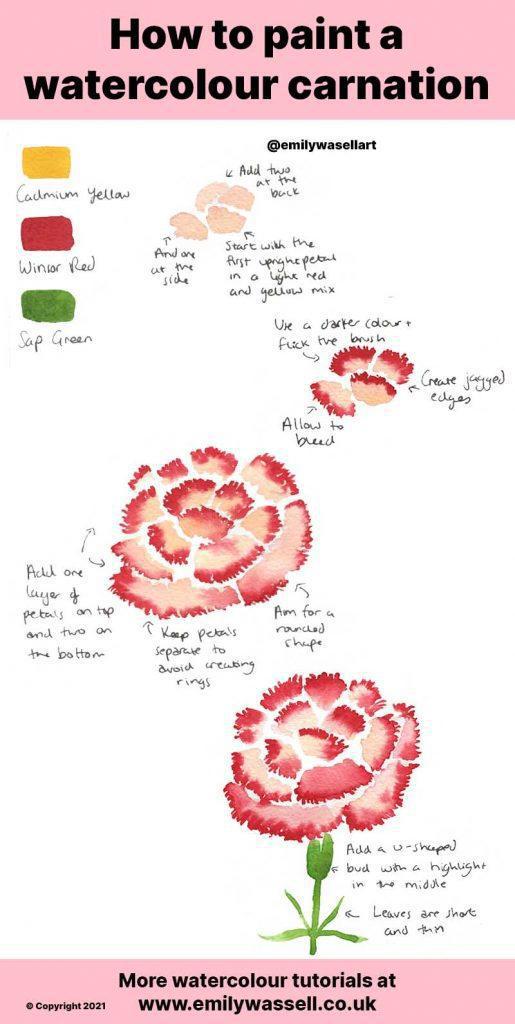 How to paint a
watercolour carnation
@emilywasellart
Cadmium Yellow
Winsor Red
Sap Green
Add two
at the
back
And one
at the
side
Start with the
first upright petal
in a light red
and yellow mix
Use a darker colour +
flick the brush
Create jagged
edges
Allow to
bleed
Add one
layer of
petals on top
and two on
the bottom
Keep petals
separate to
avoid creating
rings
Aim for a
rounded
shape
Add a u-shaped
bud with a highlight
in the middle
Leaves are short
and thin
More watercolour tutorials at
© Copyright 2021
www.emilywassell.co.uk